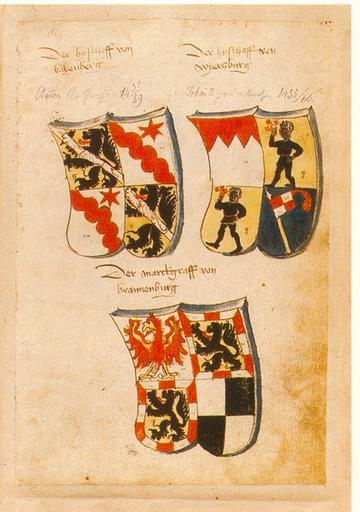 Der byschoff von
babenberg
Der byschoff von
wierczburg
Anton 1459
Johan 1455/66.
Der marckgraff von
brannenburg